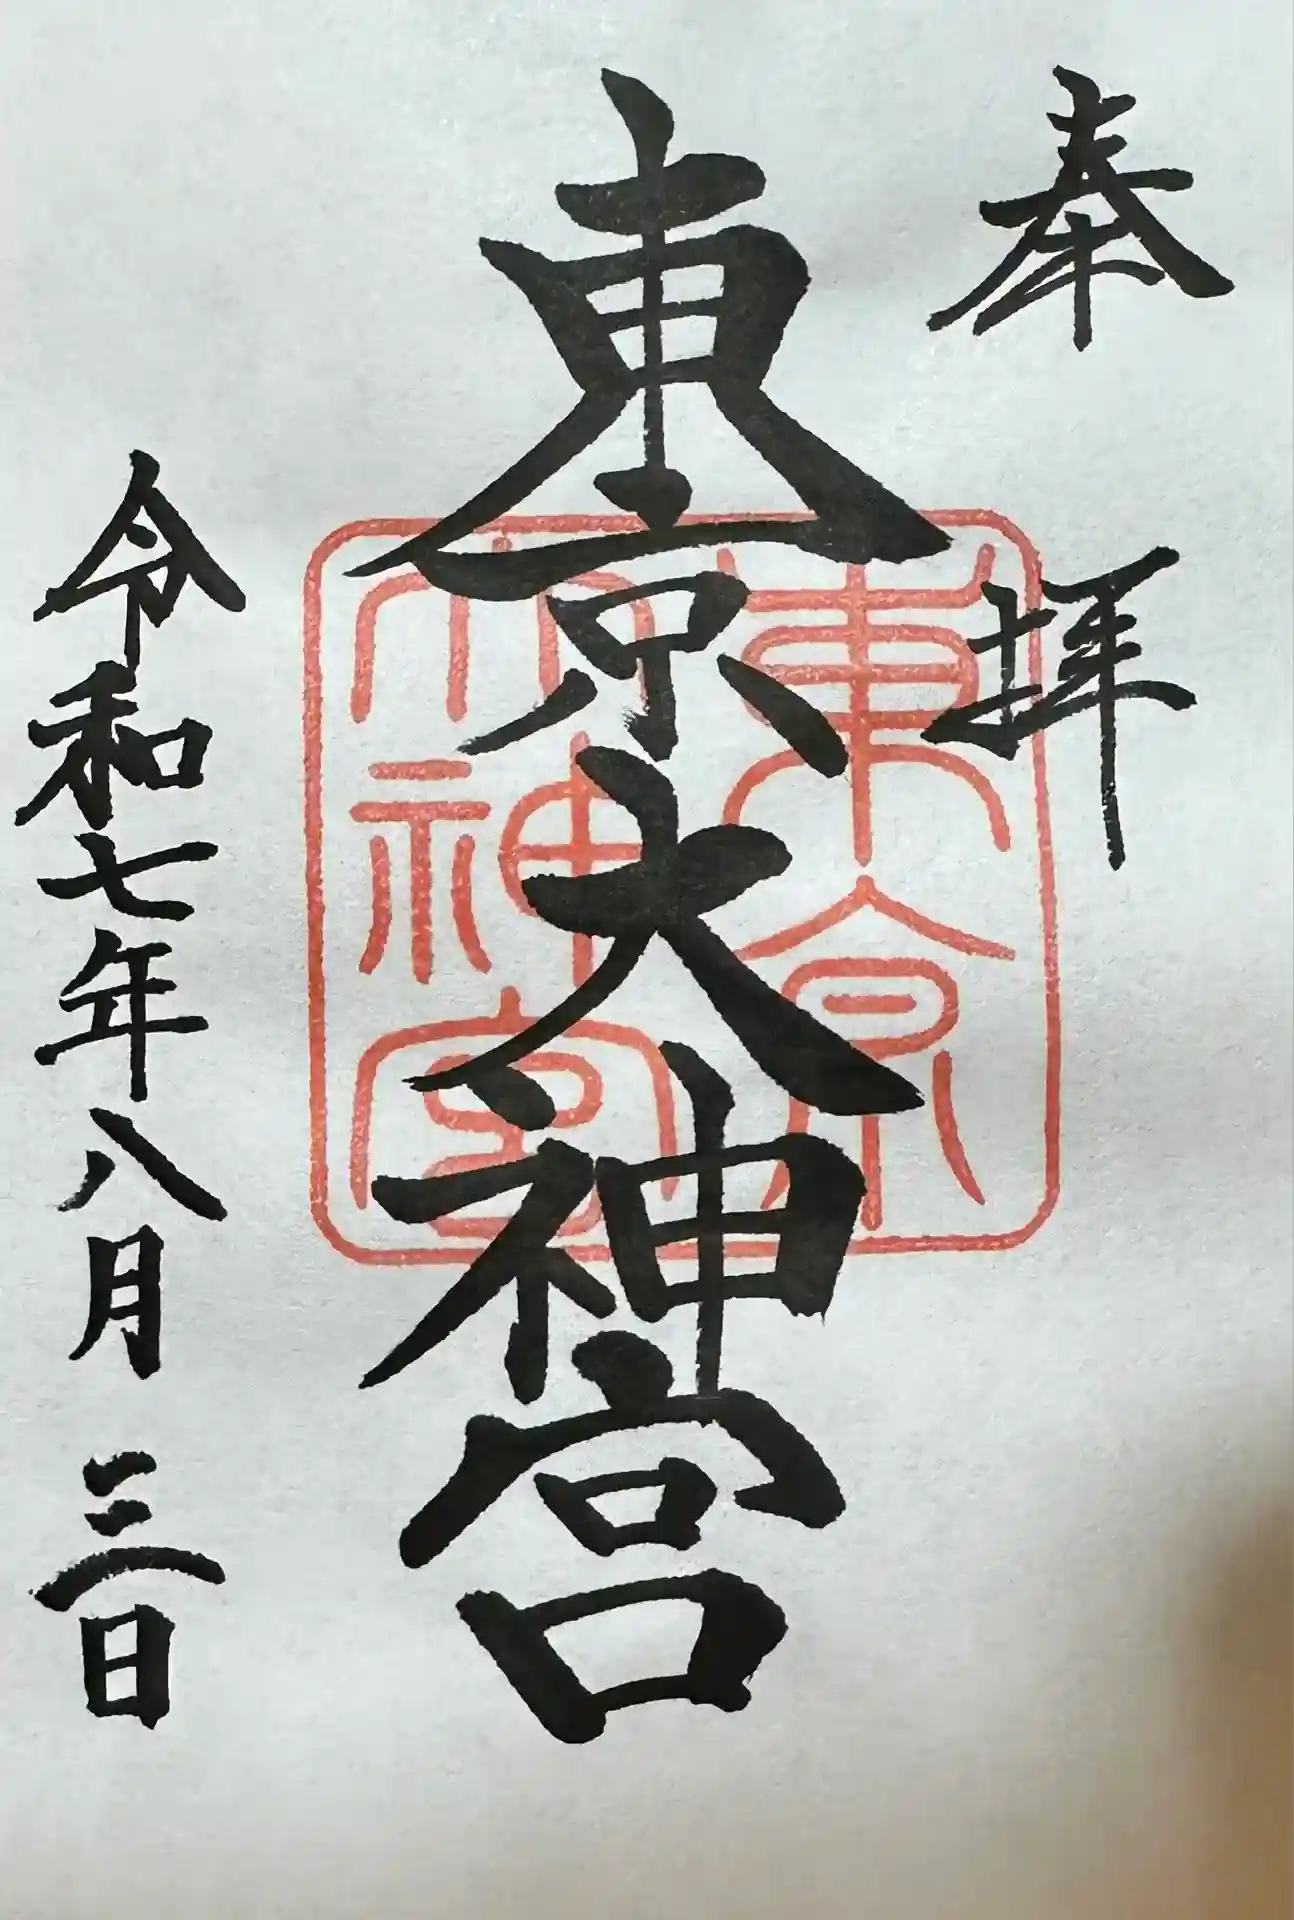 奉拝
東京大神宮
東京
大神宮
令和七年八月三日